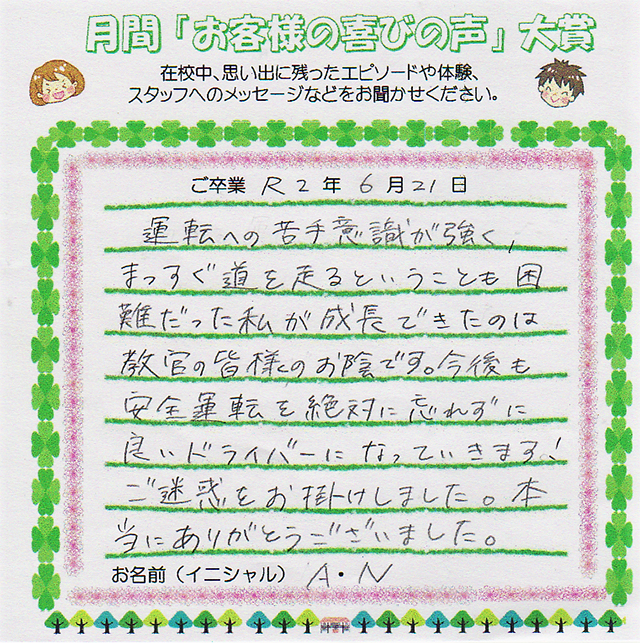 月間「お客様の喜びの声」大賞
在校中、思い出に残ったエピソードや体験、
スタッフへのメッセージなどをお聞かせください。
ご卒業 R2年 6月21日
運転への苦手意識が強く、
まっすぐ道を走るということも困
難だった私が成長できたのは
教官の皆様のお陰です。今後も
安全運転を絶対に忘れずに
良いドライバーになっていきます!
ご迷惑をお掛けしました。本
当にありがとうございました。
お名前(イニシャル) A・N